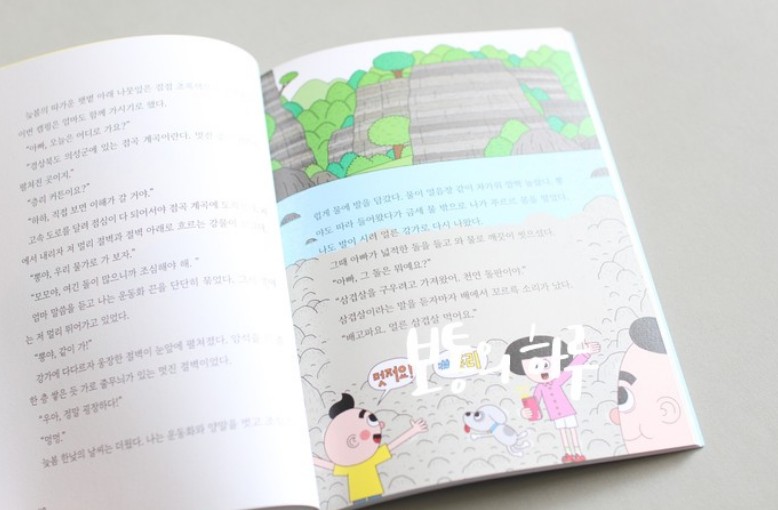 늦봄의 따가운 햇볕 아래 나뭇잎은 점점 초록
이번 캠핑은 엄마도 함께 가시기로 했다.
“아빠, 오늘은 어디로 가요?”
“경상북도 의성군에 있는 점곡 계곡이란다. 멋진
펼쳐진 곳이지.”
“층리 커튼이요?”
“하하, 직접 보면 이해가 갈 거야.”
고속 도로를 달려 점심이 다 되어서야 점곡 계곡에 도
에서 내리자 저 멀리 절벽과 절벽 아래로 흐르는 강물이
“뽕아, 우리 물가로 가 보자.”
“모모야, 여긴 돌이 많으니까 조심해야 해.”
엄마 말씀을 듣고 나는 운동화 끈을 단단히 묶었다.
는 저 멀리 뛰어가고 있었다.
“뽕아, 같이 가!”
강가에 다다르자 웅장한 절벽이 눈앞에 펼쳐졌다.
한 층 쌓은 듯 가로 줄무늬가 있는 멋진 절벽이었다.
“우아, 정말 굉장하다!”
“멍멍.”
늦봄 한낮의 날씨는 더웠다. 나는 운동화와 양말을 벗고
럽게 물에 발을 담갔다. 물이 얼음장 같이 차가워 깜짝 놀랐다. 뽕
아도 따라 들어왔다가 금세 물 밖으로 나가 부르르 몸을 떨었다.
나도 발이 시려 얼른 강가로 다시 나왔다.
그때 아빠가 넓적한 돌을 들고 와 물로 깨끗이 씻으셨다.
“아빠, 그 돌은 뭐예요?”
“삼겹살을 구우려고 가져왔어. 천연 돌판이야.”
삼겹살이라는 말을 듣자마자 배에서 꼬르륵 소리가 났다.
“배고파요. 얼른 삼겹살 먹어요.”
보통의 하루
멋져요!